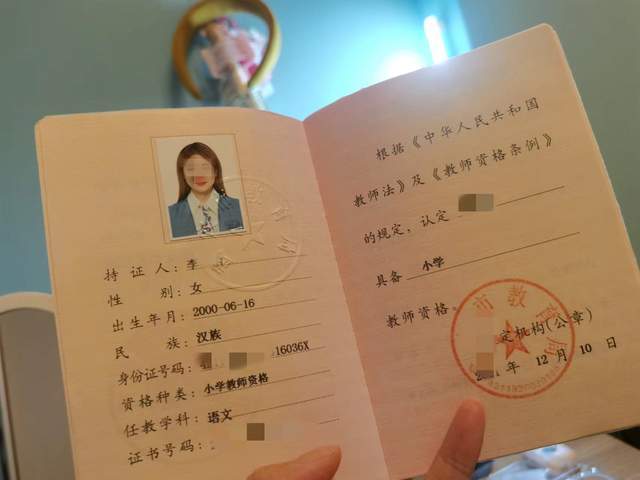 持证人：李
性别：女
出生年月：2000-06-16
民族：汉族
身份证号码：16036X
资格种类：小学教师资格
任教学科：语文
证书号码：
根据《中华人民共和国
教师法》及《教师资格条例》
的规定，认定
具备 小学
教师资格。
定机构(公章)
年 12 月 10 日
市教育局